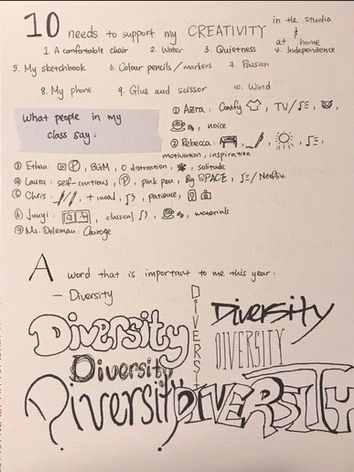 10 needs to support my CREATIVITY in the studio & at home
1. A comfortable chair 2. Water 3. Quietness 4. Independence
5. My sketchbook 6. Colour pencils / markers 7. Passion
8. My phone 9. Glue and scissor 10. Wind
What people in my
class say:
① Azra: Comfy , TV/ , ,
, noice
② Rebecca: , , , ,
motivation, inspiration
③ Ethan: , BGM, 0 distraction, , solitude
④ Laura: self-contious, Ⓟ, pink pen, Big SPACE, /Netflix.
⑤ Chris: , + mood, , patience,
⑥ Junyi: , classical , , materials
⑦ Ms. Doleman: Courage
A word that is important to me this year:
— Diversity
DIVERSITY
Diversity
Diversity
DIVERSITY
Diversity
Diversity
DIVERSITY